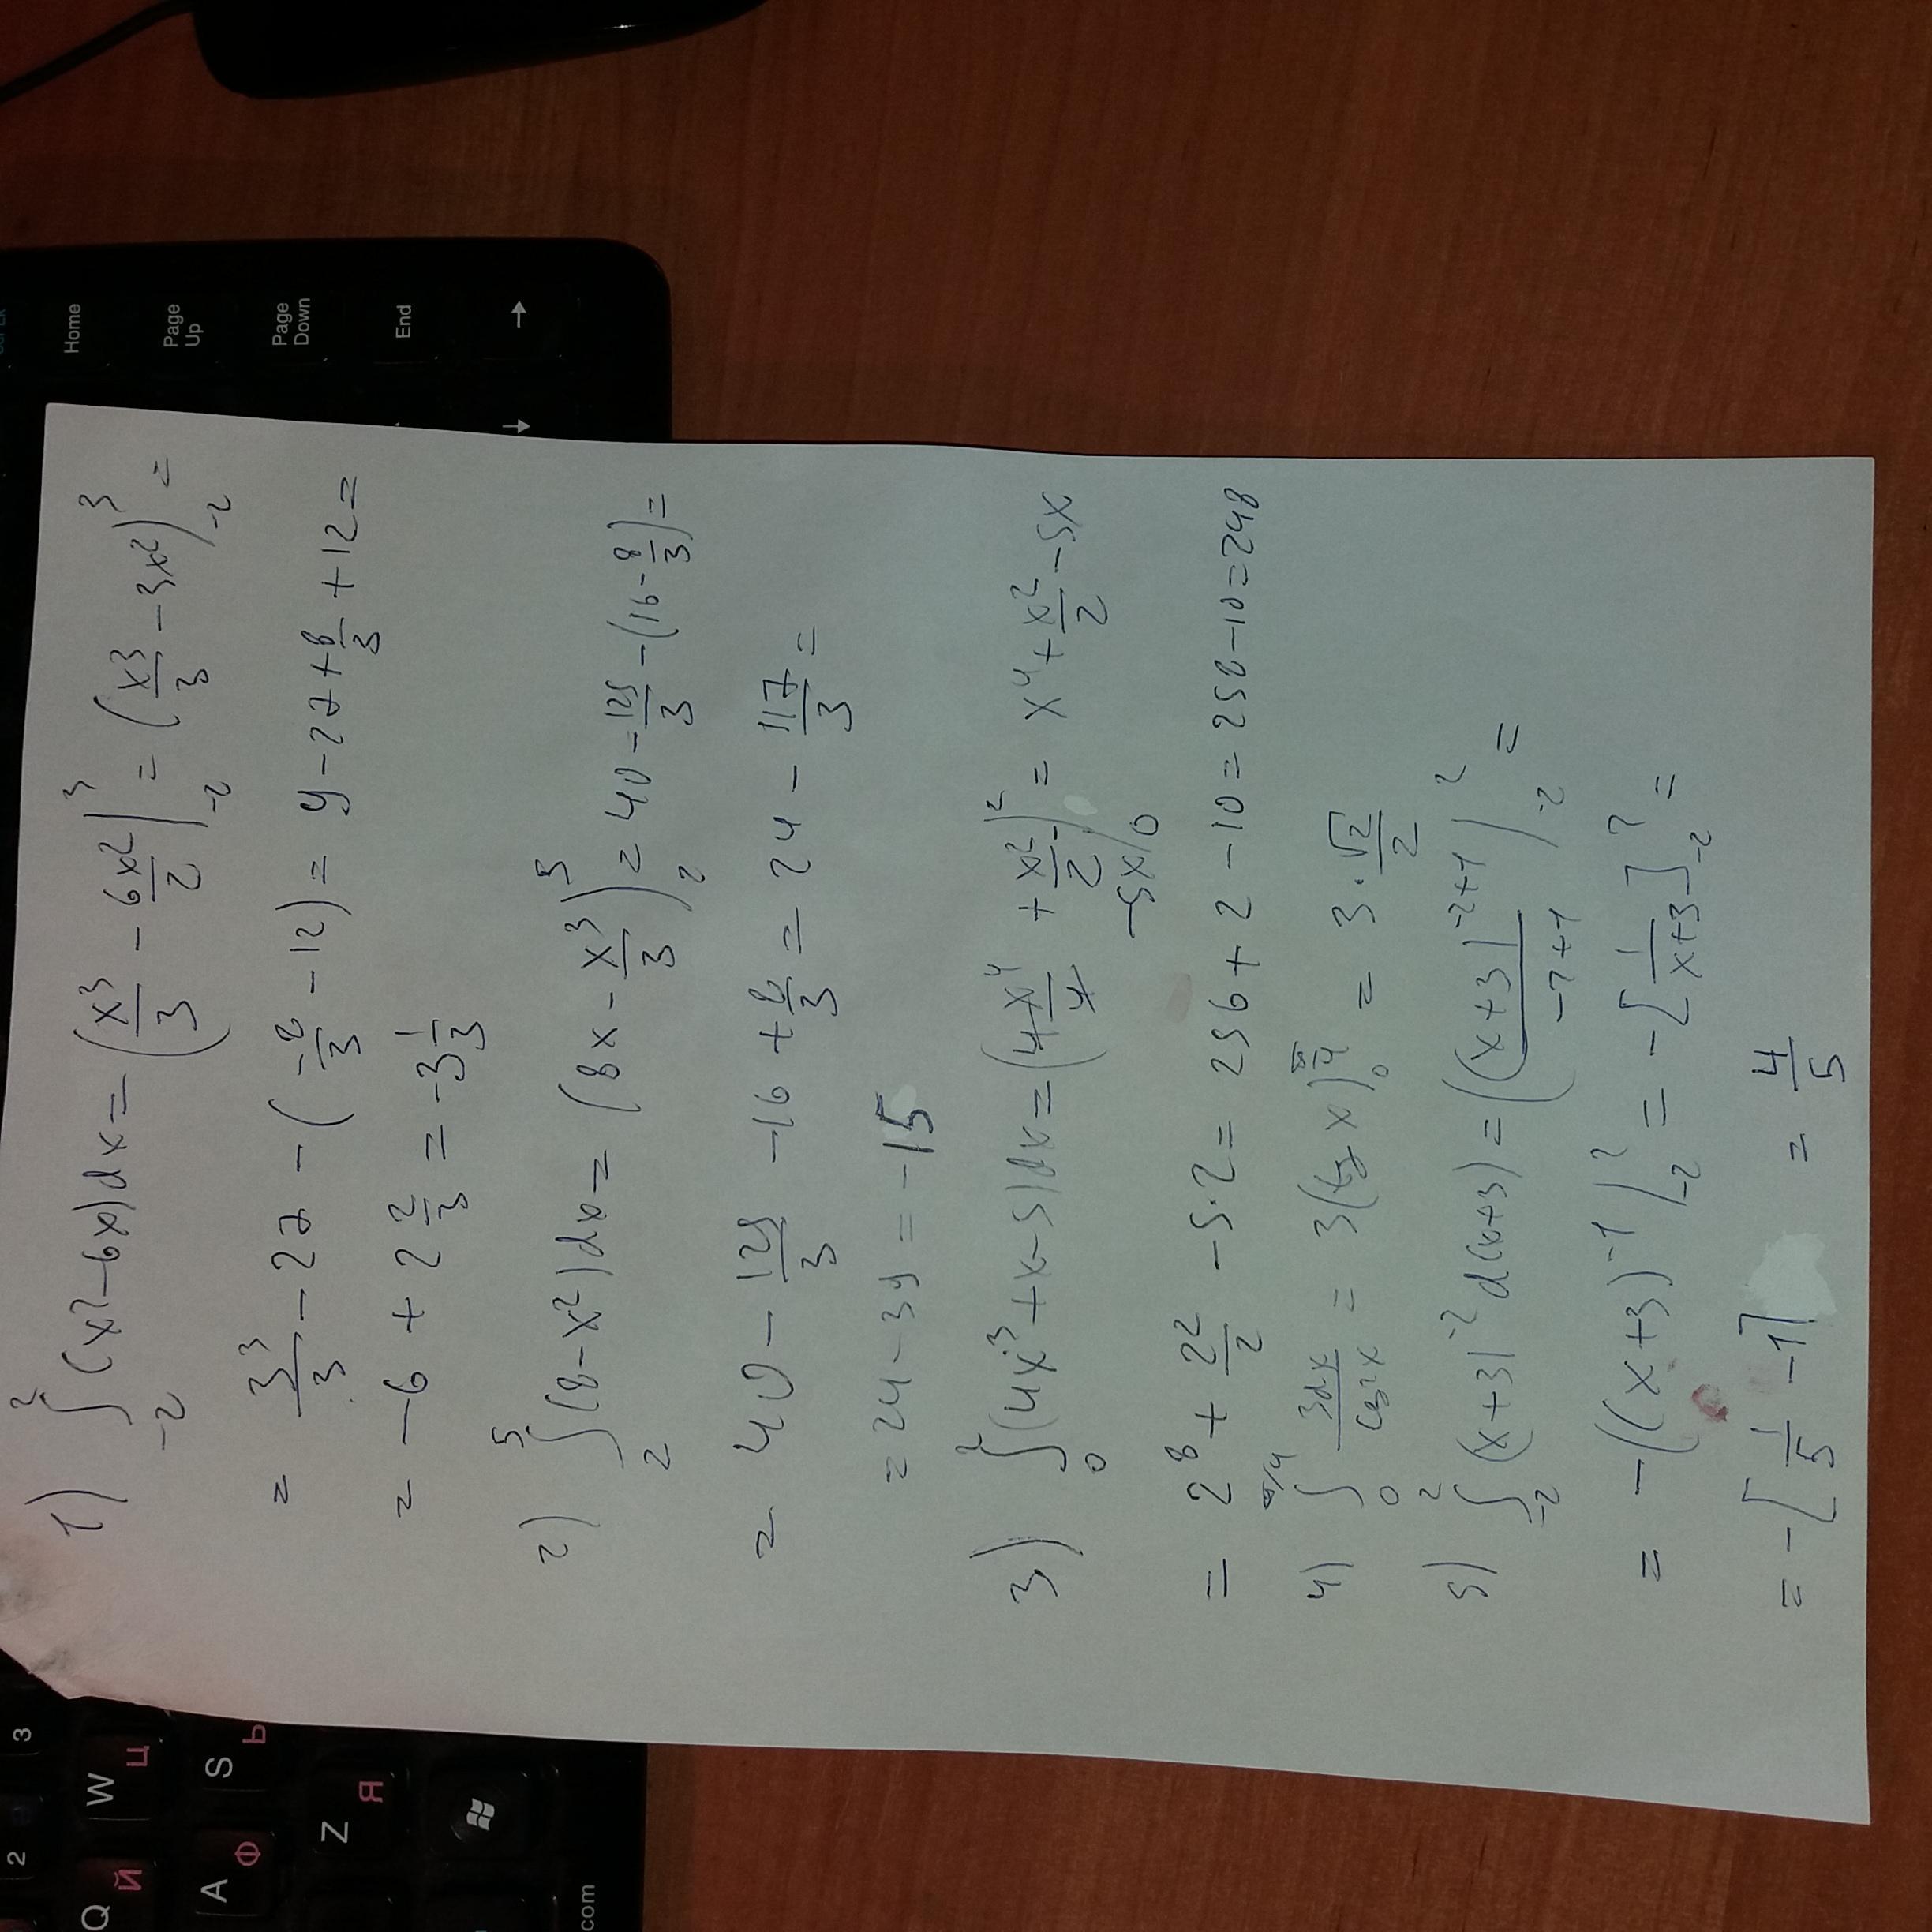 1) ∫₋₂³ (x²-6x)dx = (x³/3 - 6x²/2 |₋₂³ = (x³/3 - 3x²)₋₂³ =
= 3³/3 - 27 - (-8/3 - 12) = 9 - 27 + 8/3 + 12 =
= -6 + 2 2/3 = -3 1/3
2) ∫₂⁵ (8-x²)dx = (8x - x³/3)₂⁵ = 40 - 125/3 - (16 - 8/3) =
= 40 - 125/3 - 16 + 8/3 = 24 - 117/3 =
= 24 - 39 = -15
3) ∫₀² (4x³+x-5)dx = (4x⁴/4 + x²/2 - 5x)₀² = x⁴ + x²/2 - 5x
= 2⁸ + 2²/2 - 5·2 = 256 + 2 - 10 = 258 - 10 = 248
4) ∫₀^π/4 3dx/cos²x = 3(tg x)₀^π/4 = 3·√2/2
5) ∫₋₂² (x+3)⁻² d(x+3) = ((x+3)⁻²⁺¹/-2+1)₋₂² =
= -((x+3)⁻¹)₋₂² = -[1/x+3]₋₂² =
= -[1/5 - 1] = 4/5
Home
Page Up
Page Down
End
→
↓
2
3
Q Й
W Ц
A Ф
S Ы
Z Я
com